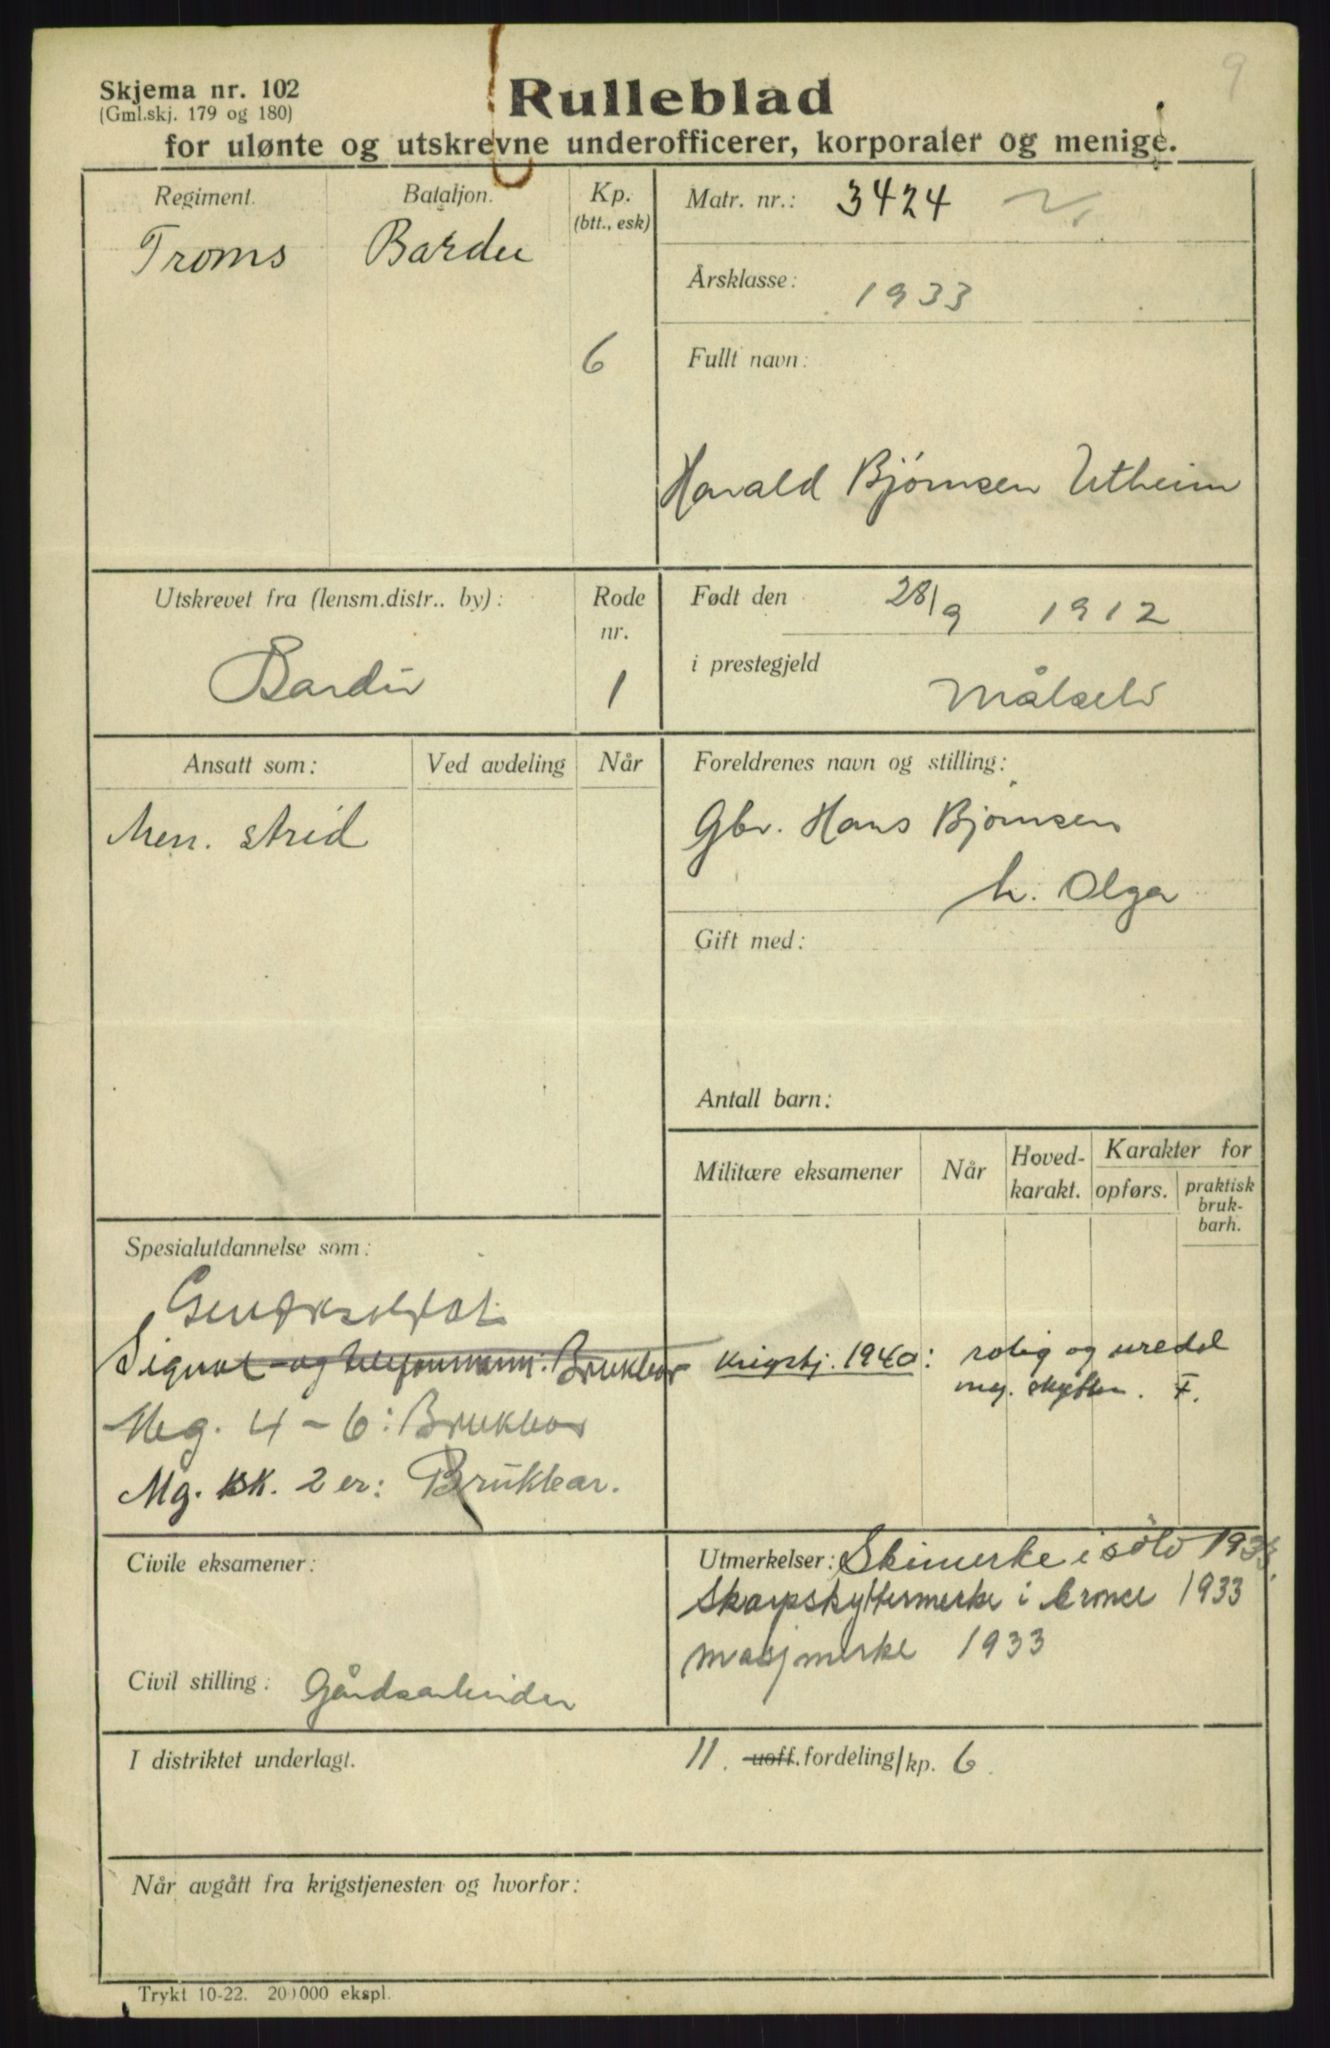 9
Skjema nr. 102
(Gml.skj. 179 og 180)
Rulleblad
for ulønte og utskrevne underofficerer, korporaler og menige.
Regiment.
Troms
Bataljon.
Bardu
Kp.
(btt., esk)
6
Matr. nr.: 3424
Årsklasse: 1933
Fullt navn:
Harald Bjørnsen Utheim
Utskrevet fra (lensm.distr.. by):
Bardu
Rode
nr.
1
Født den 28/9 1912
i prestegjeld Målselv
Ansatt som:
Men. strid
Ved avdeling
Når
Foreldrenes navn og stilling:
Gbr. Hans Bjørnsen
h. Olga
Gift med:
Antall barn:
Militære eksamener
Når
Hoved-
karakt.
Karakter for
opførs.
praktisk
bruk-
barh.
Krigstj. 1940: rolig og uredd
meg. skytter. F.
Spesialutdannelse som:
Signal- og telefonmann: Brukbar
Meg. 4-6: Brukbar
Mg. kk. 2 er: Brukbar.
Civile eksamener:
Civil stilling: Gårdsarbeider
Utmerkelser: Skimerke i sölv 1933.
Skarpskyttermerke i bronce 1933
Masjmerke 1933
I distriktet underlagt.
11. uoff. fordeling/kp. 6.
Når avgått fra krigstjenesten og hvorfor:
Trykt 10-22. 200000 ekspl.